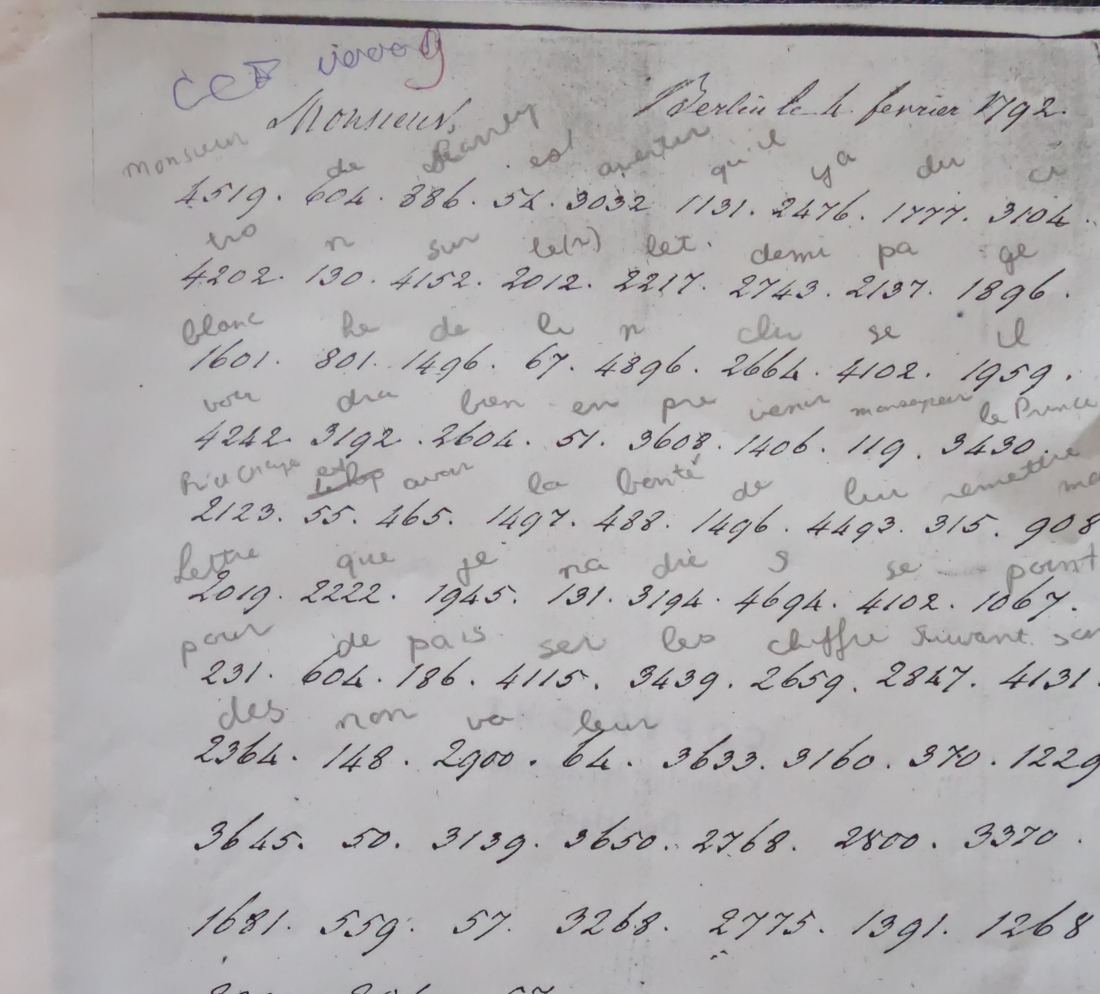 Monsieur, Berlin le 4. fevrier 1792.
monsieur de est avertir qu'il ya du ci
4519. 604. 886. 54. 3032 1131. 2476. 1777. 3104.
tro n sur le(r) let. demi pa ge
4202. 130. 4152. 2012. 2217. 2743. 2137. 1896.
blanc he de le n clu se il
1601. 801. 1496. 67. 4896. 2664. 4102. 1959.
vou dra bien en pre venir monseigneur le Prince
4242. 3192. 2604. 51. 3608. 1406. 119. 3430.
avoir la bonté de lui remettre ma
2123. 55. 465. 1497. 488. 1496. 4493. 315. 908
lettre que je na dre s se point
2019. 2222. 1945. 131. 3194. 4694. 4102. 1067.
pour de pais ser les chiffre suivant son
231. 604. 186. 4115. 3439. 2659. 2847. 4131.
des non va leur
2364. 148. 2900. 64. 3633. 3160. 370. 1229
3645. 50. 3139. 3650. 2768. 2800. 3370.
1681. 559. 57. 3268. 2775. 1391. 1268